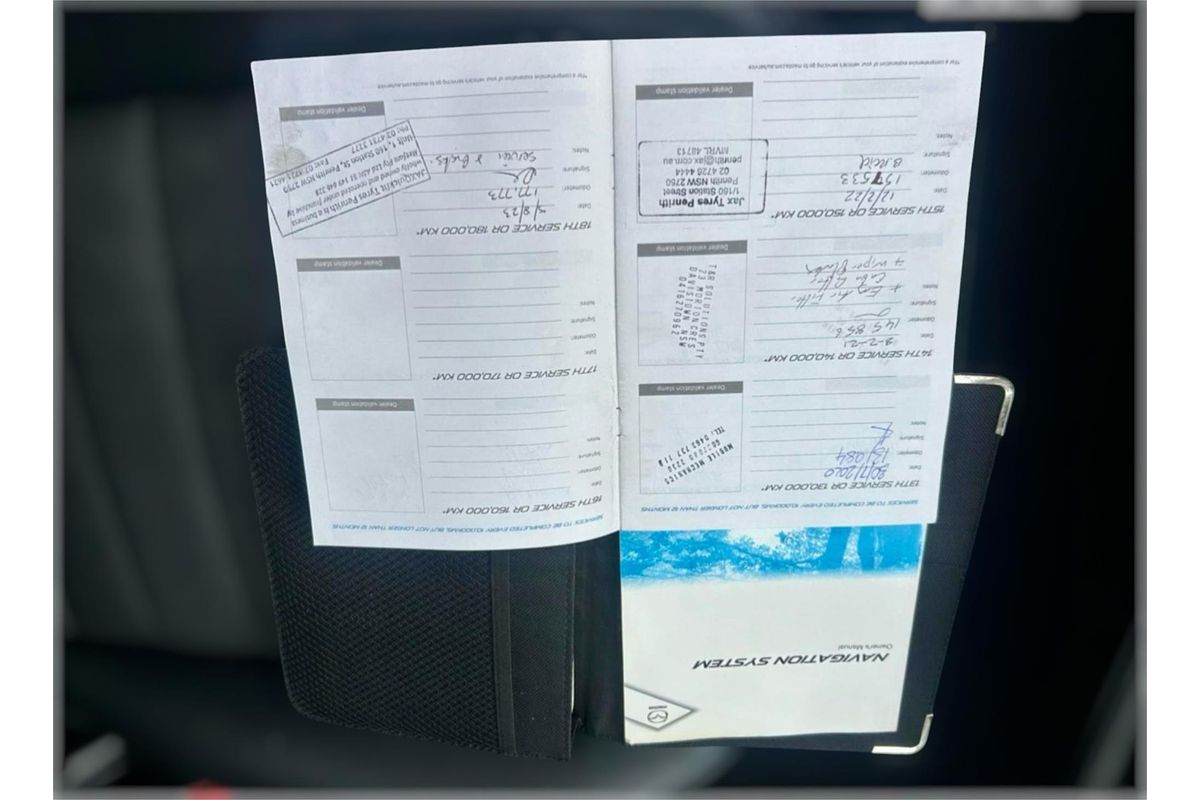 NAVIGATION SYSTEM
Owner's Manual
SERVICES TO BE COMPLETED EVERY 10,000KMS, BUT NOT LONGER THAN 12 MONTHS
13TH SERVICE OR 130,000 KM*
Date:
Odometer:
Signature:
Notes:
MOBILE MECHANICS
TEL: 0463 737
Dealer validation stamp
14TH SERVICE OR 140,000 KM*
Date: 9-2-21
Odometer: 145856
Signature:
Notes: + Eng Air Filter
Cabin Filter
+ wiper Blades
T&R SOLUTIONS PTY
23 MORTON CRES
DAVISTOWN NSW
0416270962
Dealer validation stamp
15TH SERVICE OR 150,000 KM*
Date: 12/2/22
Odometer: 157533
Signature: B.Reid
Notes:
Jax Tyres Penrith
1/160 Station Street
Penrith NSW 2750
02 4728 4444
penrith@jax.com.au
MVRL 48713
Dealer validation stamp
*For a comprehensive explanation of your vehicle's servicing go to mazda.com.au/service
SERVICES TO BE COMPLETED EVERY 10,000KMS, BUT NOT LONGER THAN 12 MONTHS
16TH SERVICE OR 160,000 KM*
Date:
Odometer:
Signature:
Notes:
Dealer validation stamp
17TH SERVICE OR 170,000 KM*
Date:
Odometer:
Signature:
Notes:
Dealer validation stamp
18TH SERVICE OR 180,000 KM*
Date: 5/8/23
Odometer: 177,773
Signature:
Notes: Service &
JAXQuickfit Tyres Penrith is a business
wholly owned and operated under franchise by
Pty Ltd ABN 51 149 648 328
Unit 1, 160 Station St, Penrith NSW 2750
Dealer validation stamp
*For a comprehensive explanation of your vehicle's servicing go to mazda.com.au/service